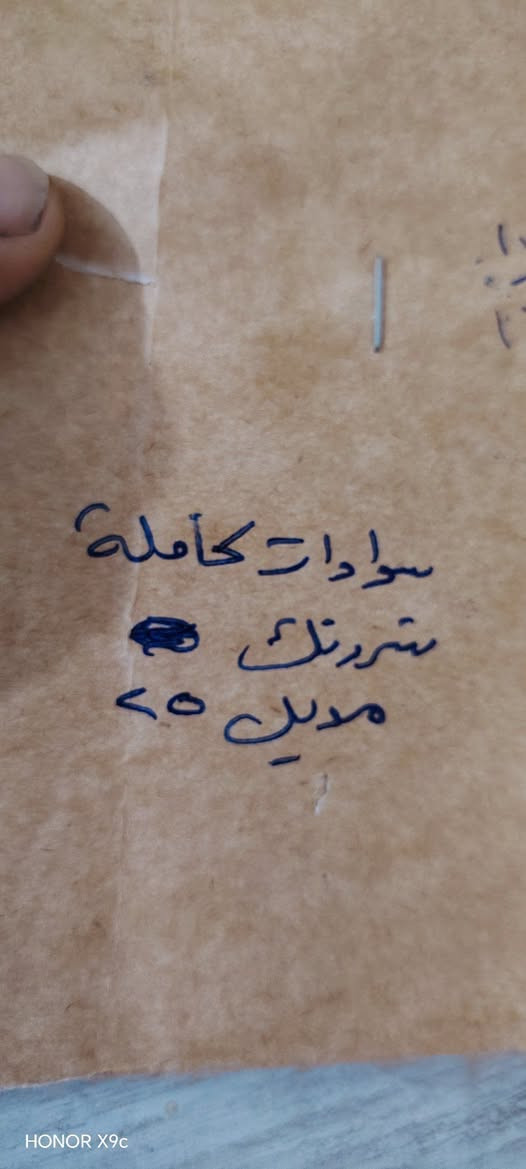 سوادات كاملة
سردنك
مديل ٢٥
HONOR X9c